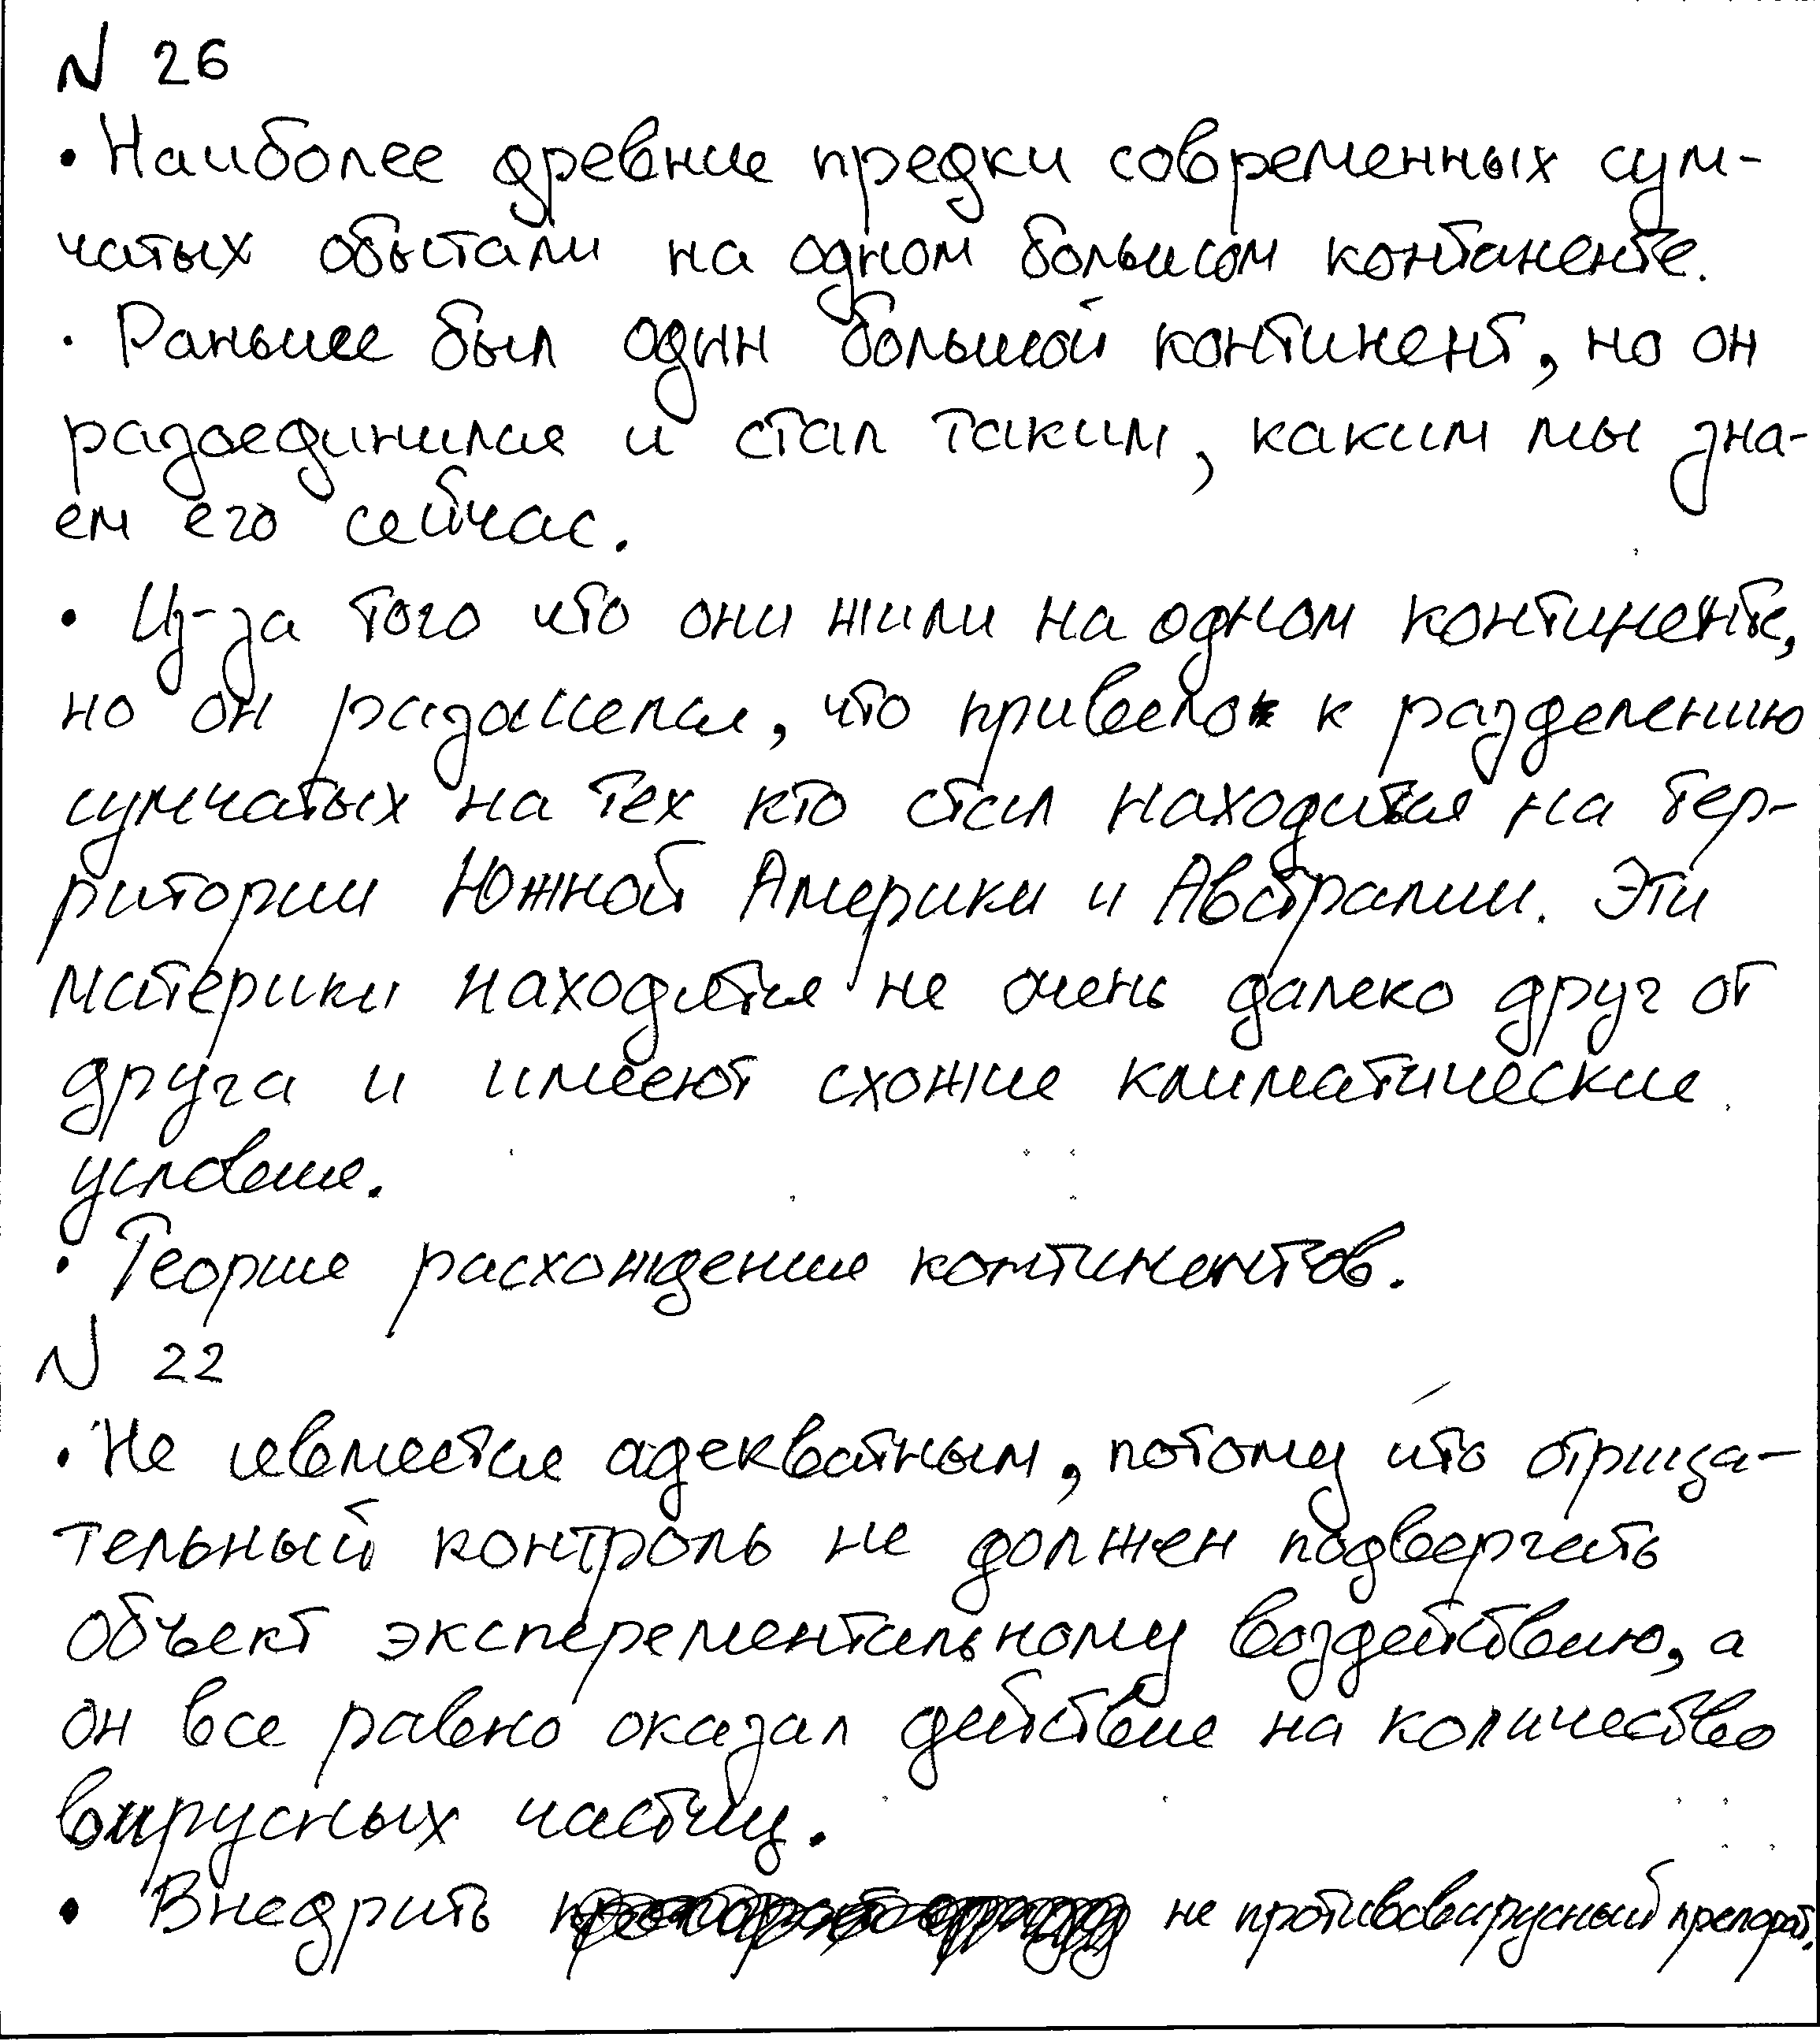 N 26
• Наиболее древние предки современных сум-
чатых обытали на одном большом контаненте.
• Раньше был один большой континент, но он
разъединился и стал таким, каким мы зна-
ем его сейчас.
• Из-за того что они жили на одном континенте,
но он разошелся, что привело к разделению
сумчатых на тех кто стал находится на тер-
ритории Южной Америки и Австралии. Эти
материки находятся не очень далеко друг от
друга и имеют схожие климатические
условия.
• Теория расхождения континентов.
N 22
• Не является адекватным, потому что отрица-
тельный контроль не должен подвергать
объект эксперементальному воздействию, а
он все равно оказал действие на количество
вирусных частиц.
• Внедрить не противовирусный препарат.